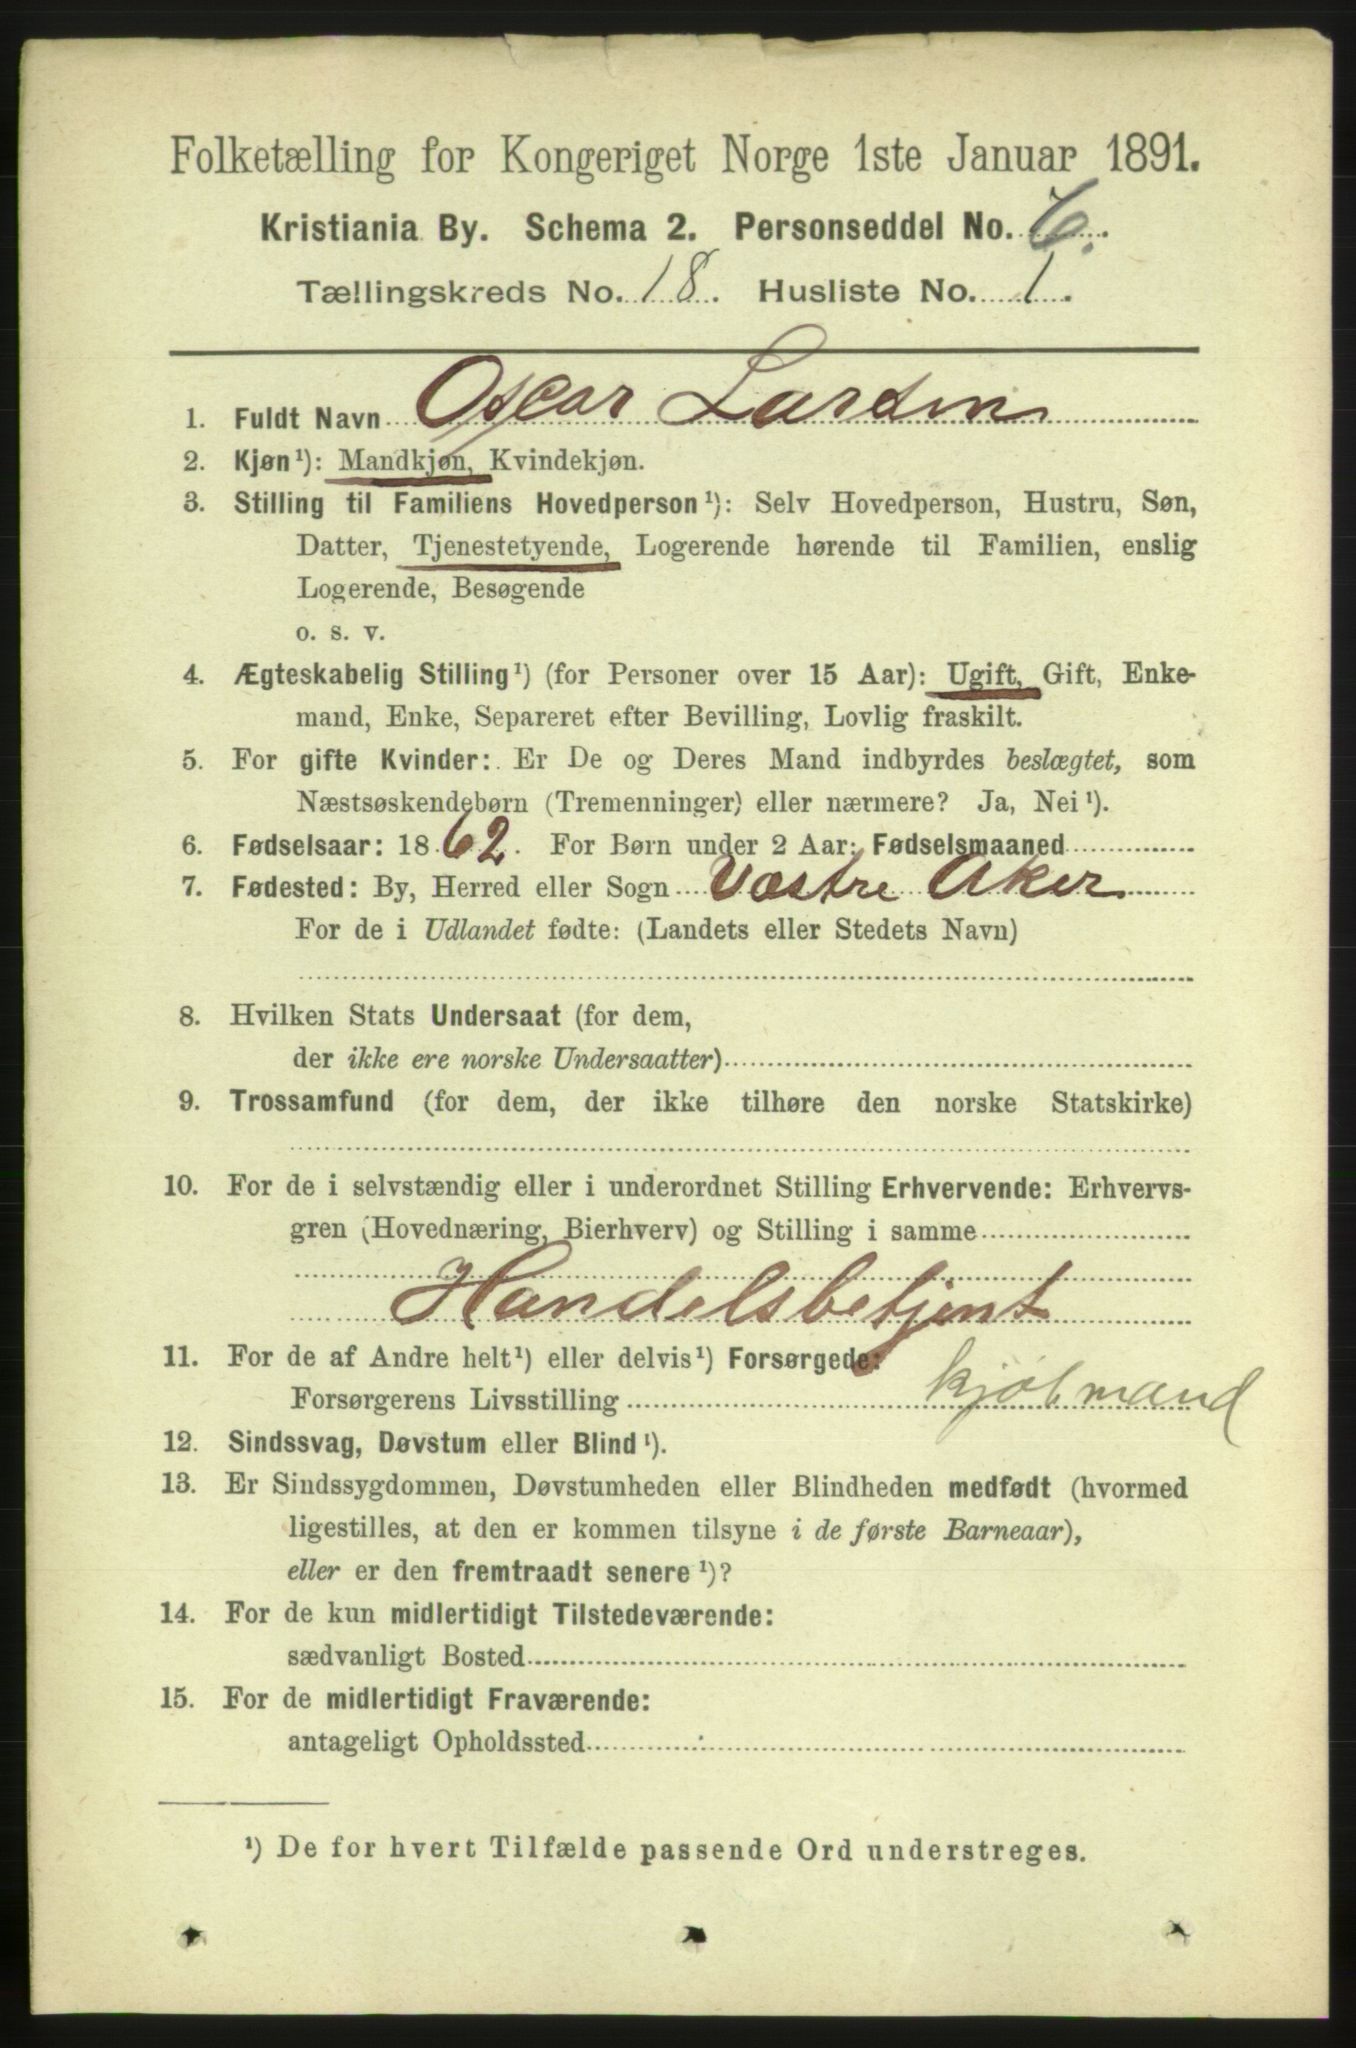 Folketælling for Kongeriget Norge 1ste Januar 1891.
Kristiania By. Schema 2. Personseddel No. 6.
Tællingskreds No. 18. Husliste No. 1.
1. Fuldt Navn Oscar Larsen
2. Kjøn¹): Mandkjøn, Kvindekjøn.
3. Stilling til Familiens Hovedperson¹): Selv Hovedperson, Hustru, Søn,
Datter, Tjenestetyende, Logerende hørende til Familien, enslig
Logerende, Besøgende
o. s. v.
4. Ægteskabelig Stilling¹) (for Personer over 15 Aar): Ugift, Gift, Enke-
mand, Enke, Separeret efter Bevilling, Lovlig fraskilt.
5. For gifte Kvinder: Er De og Deres Mand indbyrdes beslægtet, som
Næstsøskendebørn (Tremenninger) eller nærmere? Ja, Nei¹).
6. Fødselsaar: 1862. For Børn under 2 Aar: Fødselsmaaned
7. Fødested: By, Herred eller Sogn Vestre Aker
For de i Udlandet fødte: (Landets eller Stedets Navn)
8. Hvilken Stats Undersaat (for dem,
der ikke ere norske Undersaatter)
9. Trossamfund (for dem, der ikke tilhøre den norske Statskirke)
10. For de i selvstændig eller i underordnet Stilling Erhvervende: Erhvervs-
gren (Hovednæring, Bierhverv) og Stilling i samme
Handelsbetjent
11. For de af Andre helt¹) eller delvis¹) Forsørgede:
Forsørgerens Livsstilling kjøbmand
12. Sindssvag, Døvstum eller Blind¹).
13. Er Sindssygdommen, Døvstumheden eller Blindheden medfødt (hvormed
ligestilles, at den er kommen tilsyne i de første Barneaar),
eller er den fremtraadt senere¹)?
14. For de kun midlertidigt Tilstedeværende:
sædvanligt Bosted
15. For de midlertidigt Fraværende:
antageligt Opholdssted
¹) De for hvert Tilfælde passende Ord understreges.